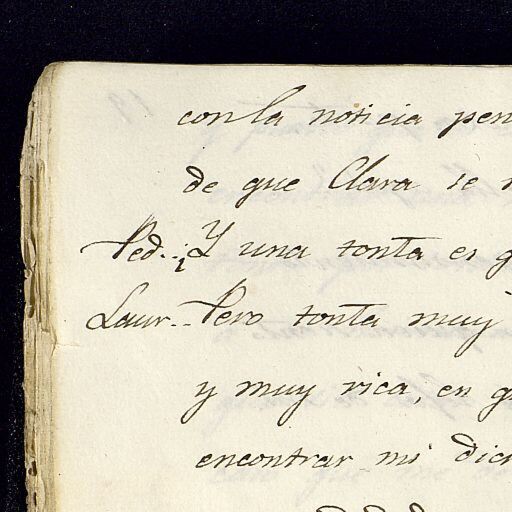 con la noticia pen
de que Clara se
Ped.. ¿Y una tonta es g
Laur.. Pero tonta muy
y muy rica, en q
encontrar mi dich